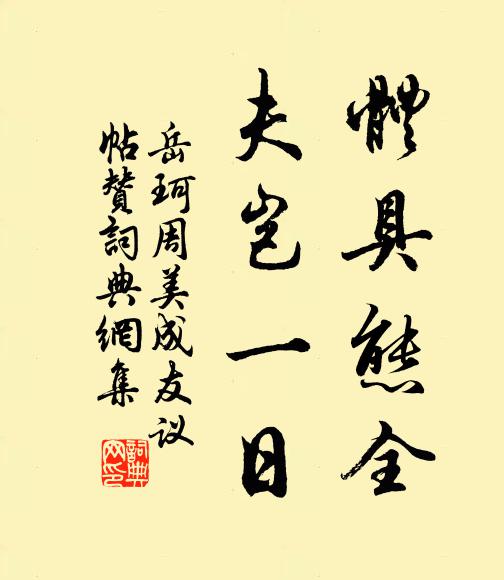 體具態全
夫岂一日
岳珂周美成友议
帖贊詞典網集
詞典网印